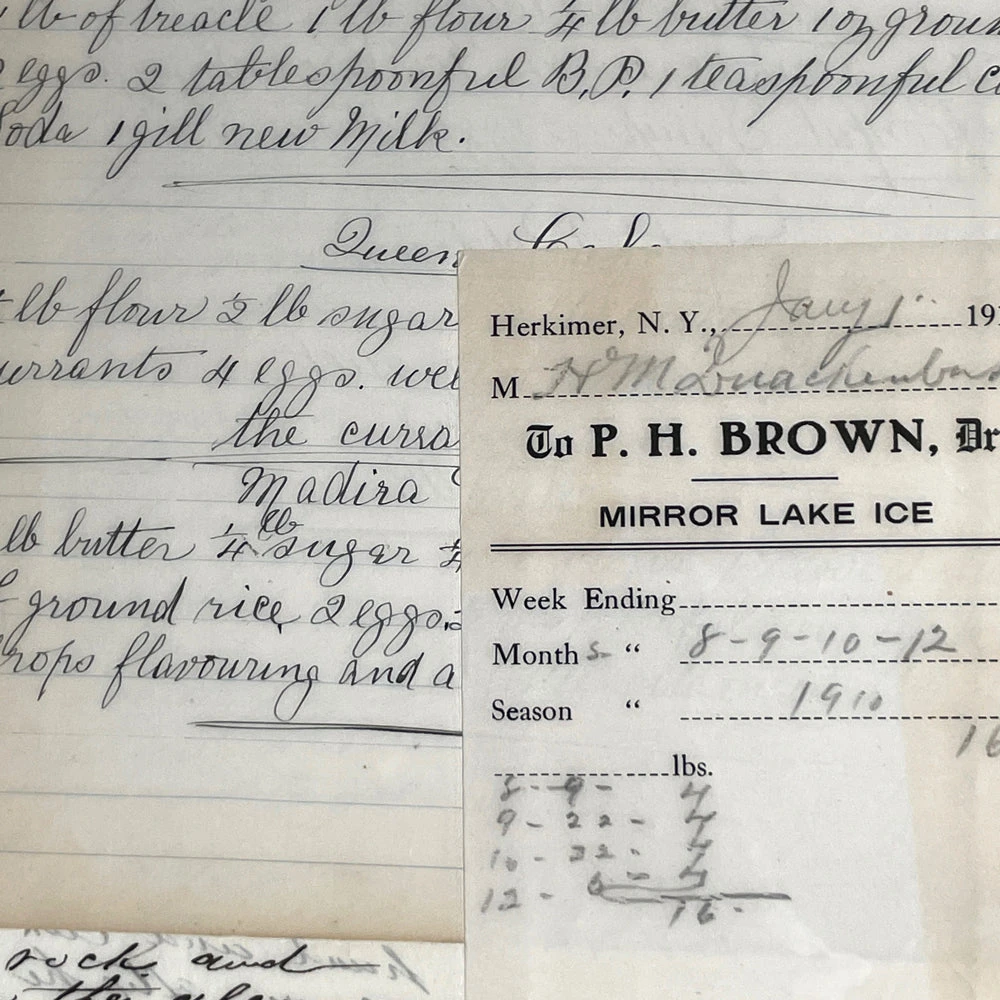 lb of treacle 1 lb flour ¼ lb butter 1 oz groun
eggs. 2 tablespoonful B.P. 1 teaspoonful c
Soda 1 gill new Milk.
Queen Cake
lb flour ½ lb sugar
urrants 4 eggs. wel
the curra
Madira
lb butter ¼ lb sugar
ground rice 2 eggs.
rops flavouring and a
rock and
Herkimer, N. Y., Jany 1 191
M H M Quackenbus
To P. H. BROWN, Dr
MIRROR LAKE ICE
Week Ending
Months “ 8-9-10-12
Season “ 1910
16
lbs.
8 - 9 - 4
9 - 22 - 4
10 - 22 - 4
12 - 6 - 4
16